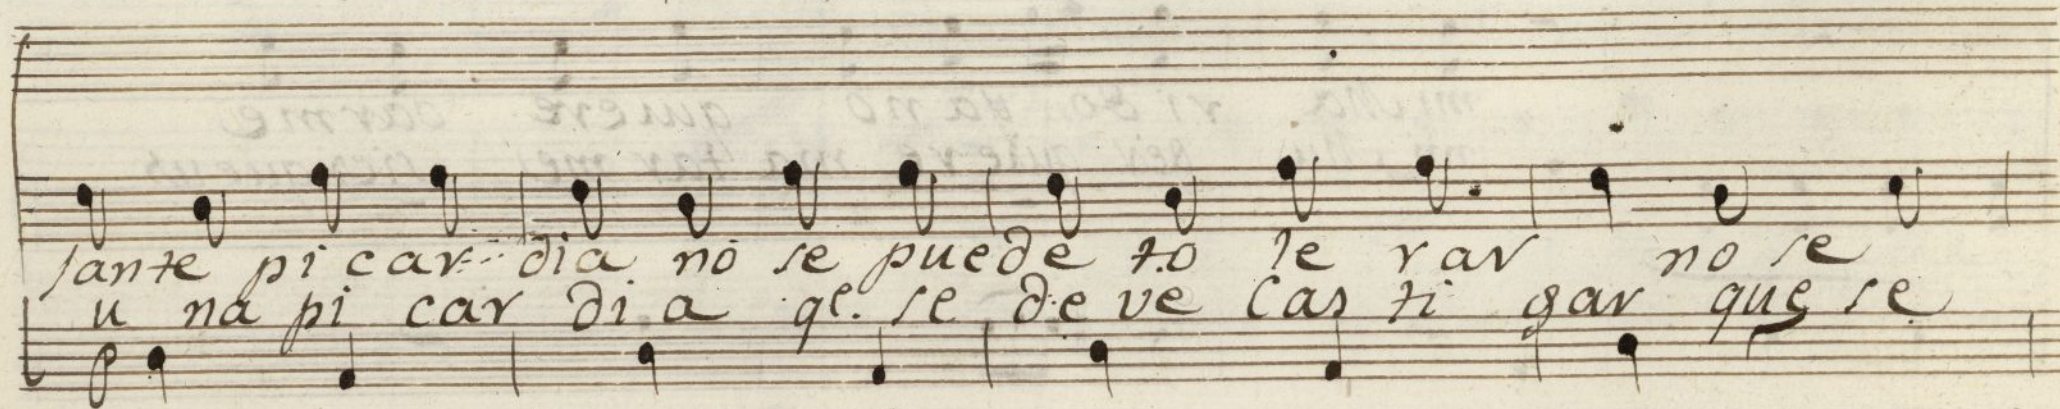 sante pi car dia no se puede to le rar no se
u na pi car di a qe. se de ve Cas ti gar que se
p